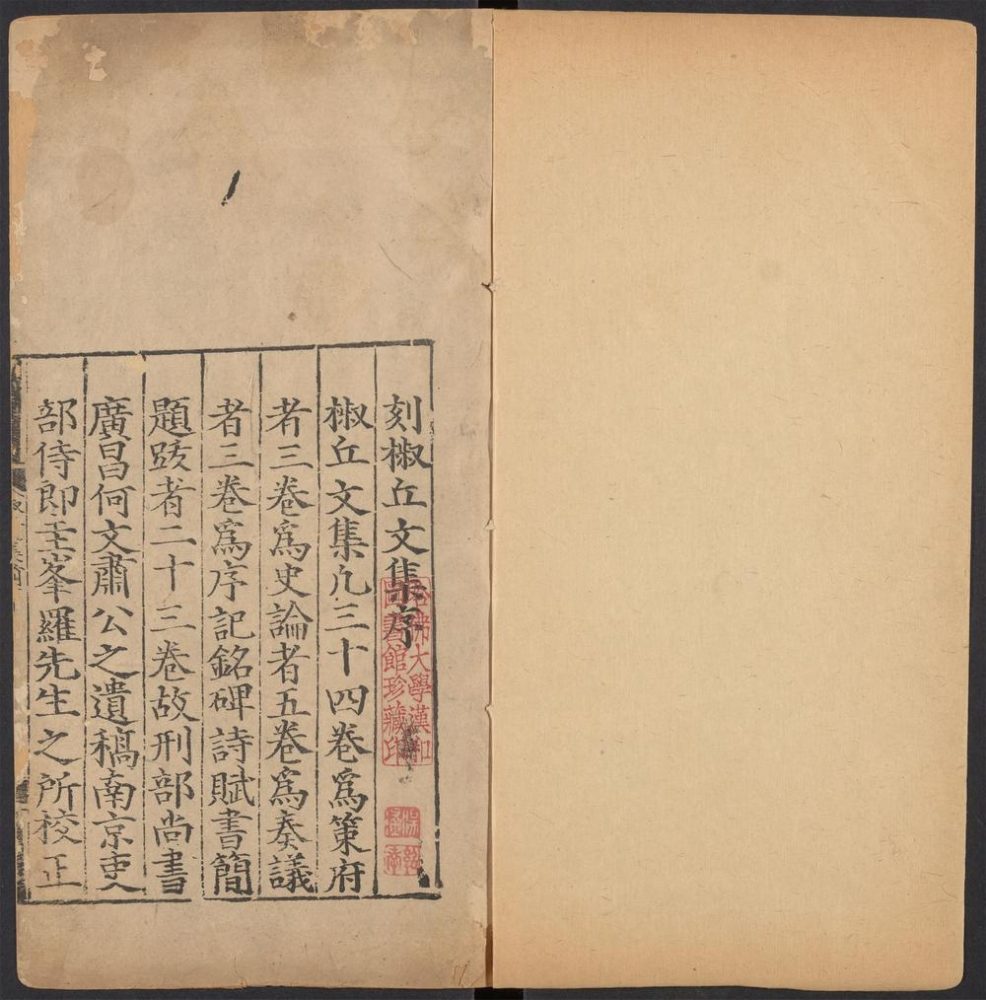 刻椒丘文集序
椒丘文集凡三十四卷爲策府
者三卷爲史論者五卷爲奏議
者三卷爲序記銘碑詩賦書簡
題䟦者二十三卷故刑部尚書
廣昌何文肅公之遺稿南京吏
部侍郎圭峯羅先生之所校正
哈佛大學漢和
圖書館珍藏印